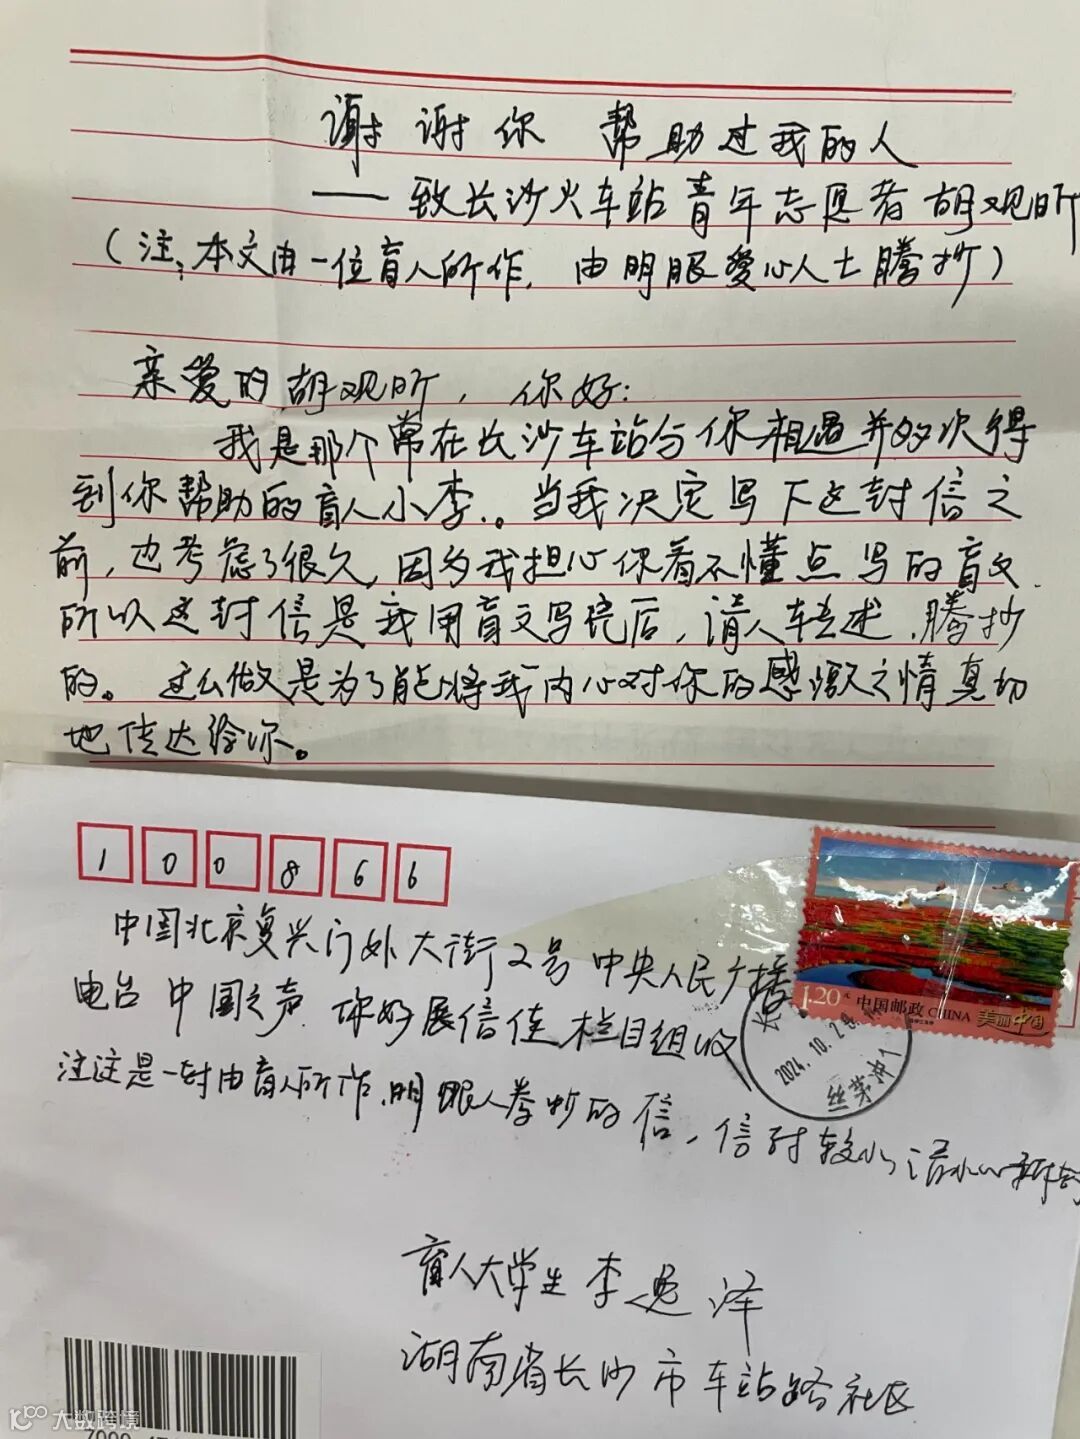 谢谢你 帮助过我的人
——致长沙火车站青年志愿者胡观昕
(注:本文由一位盲人所作,由明眼爱心人士腾抄)
亲爱的胡观昕,你好:
我是那个常在长沙车站与你相遇并多次得
到你帮助的盲人小李。当我决定写下这封信之
前,也考虑了很久,因为我担心你看不懂点写的盲文.
所以这封信是我用盲文写完后,请人转述,腾抄
的。这么做是为了能将我内心对你的感激之情真切
地传达给你。
100866
中国北京复兴门外大街2号中央人民广播
电台 中国之声 你好展信佳 栏目组收
注这是一封由盲人所作,明眼人誊抄的信,信封较小请小心拆封
盲人大学生 李 泽
湖南省长沙市车站路社区
1.20元 中国邮政 CHINA 美丽中国
2024.10.2
丝茅冲1
大数跨境